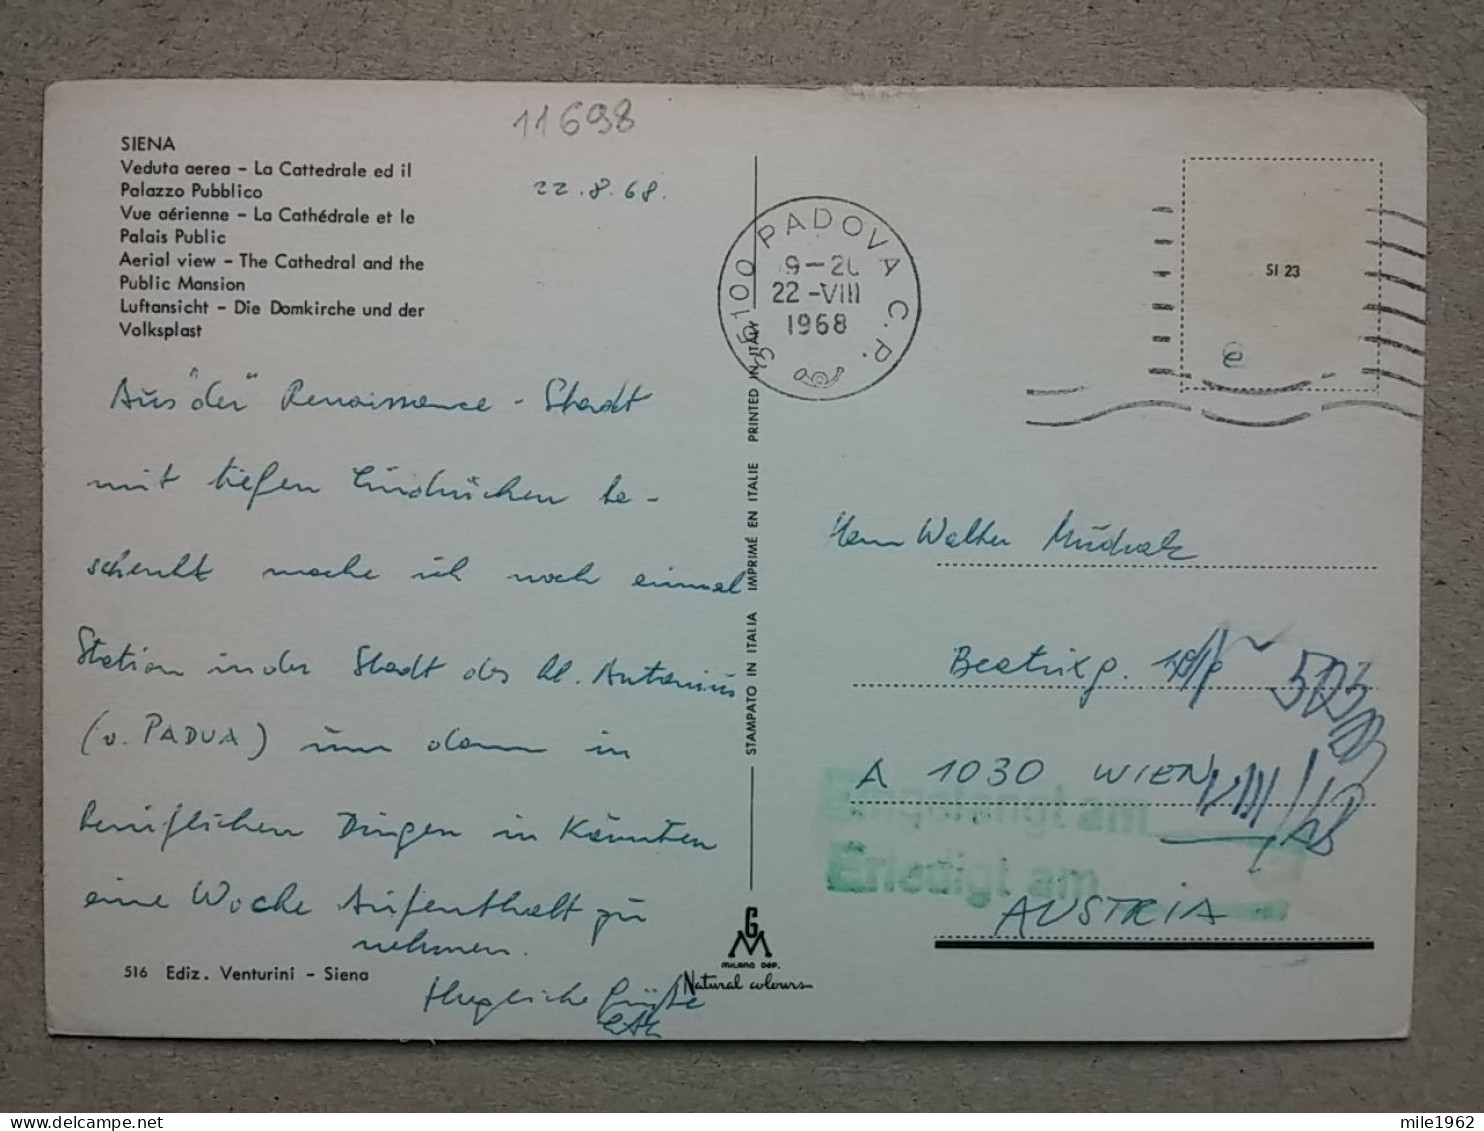 11698
SIENA
Veduta aerea - La Cattedrale ed il
Palazzo Pubblico
Vue aérienne - La Cathédrale et le
Palais Public
Aerial view - The Cathedral and the
Public Mansion
Luftansicht - Die Domkirche und der
Volksplast
22.8.68.
Aus "der" Renaissance-Stadt
mit tiefen Eindrücken be-
schenkt mache ich noch einmal
Station in der Stadt des hl. Antonius
(v. PADUA) um dann in
beruflichen Dingen in Kärnten
eine Woche Aufenthalt zu
nehmen.
516 Ediz. Venturini - Siena
Grüße
STAMPATO IN ITALIA IMPRIMÉ EN ITALIE PRINTED IN ITALY
GM
MILANO DEP.
Natural colours
35100 PADOVA C.P.
22-VIII
1968
SI 23
e
Herrn Walter
Beatrixg.
A 1030 WIEN
eingelangt am
Erledigt am
AUSTRIA
mile1962